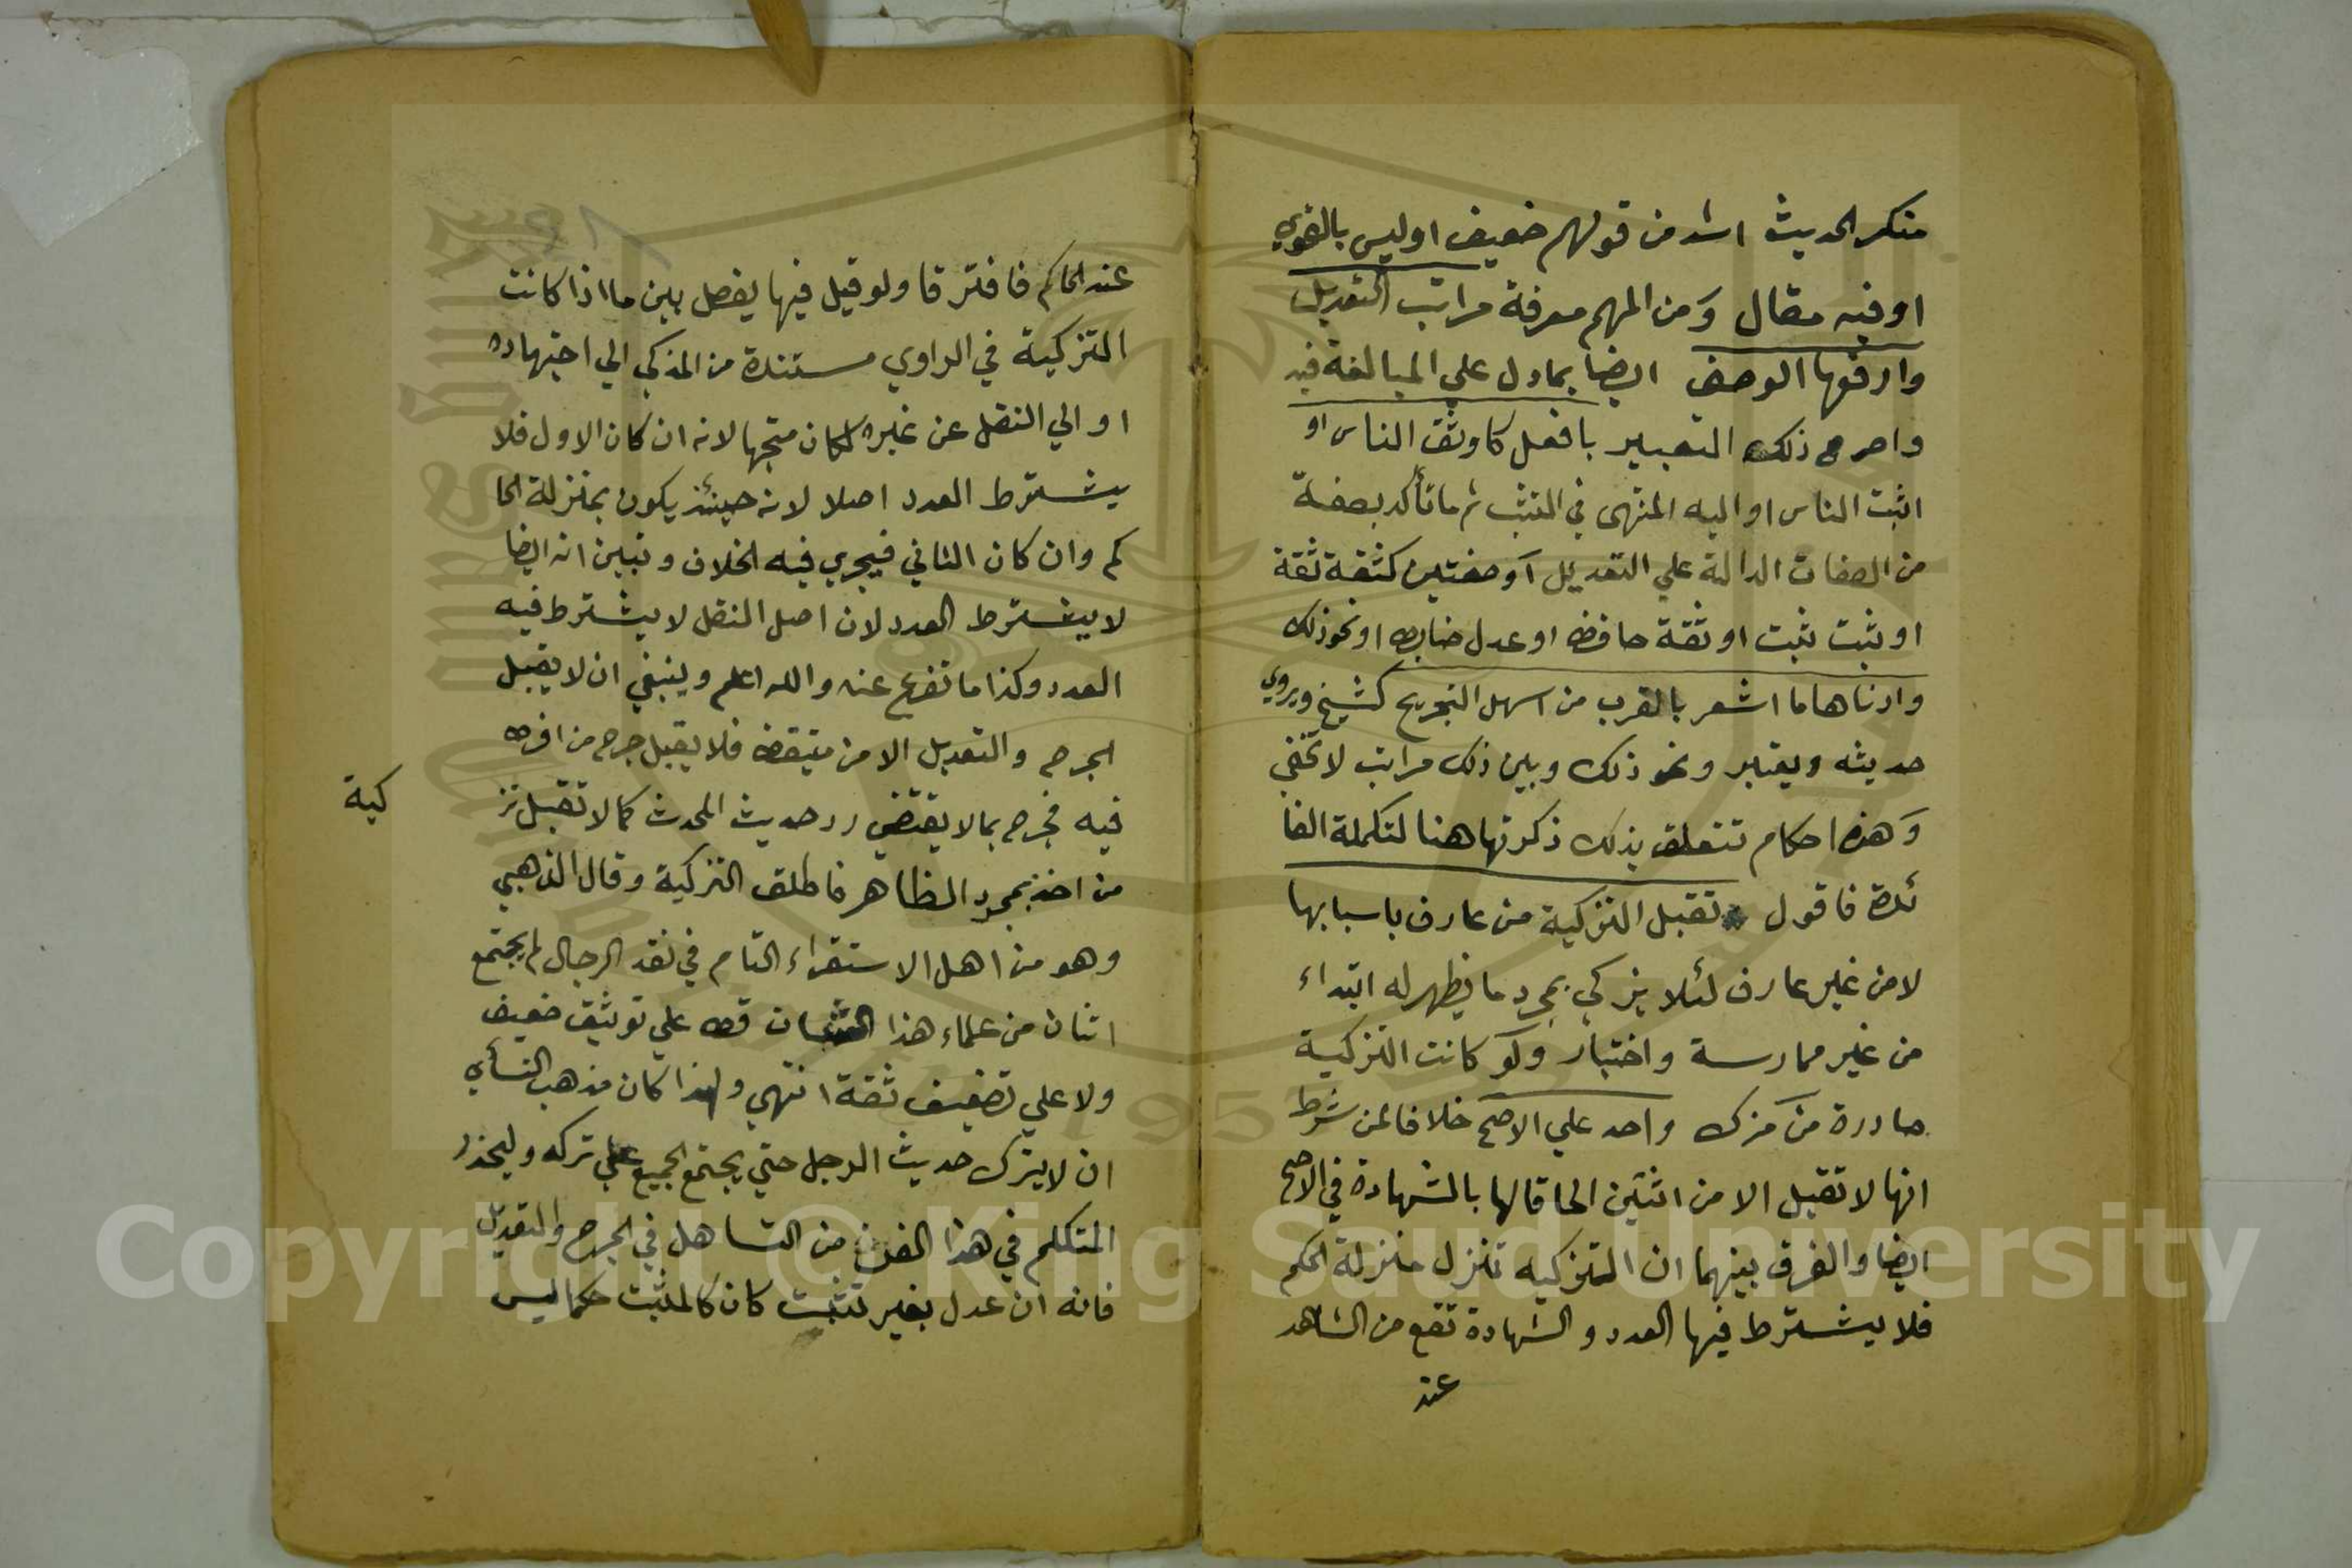 منكر الحديث اشد من قولهم ضعيف او ليس بالقوي
او فيه مقال ومن المهم معرفة مراتب التعديل
وارفعها الوصف ايضا بما دل علي المبالغة فيه
واصرح ذلك التعبير بافعل كاوثق الناس او
اثبت الناس او اليه المنتهى في التثبت ثم ما تأكد بصفة
من الصفات الدالة علي التعديل او صفتين كثقة ثقة
او ثبت ثبت او ثقة حافظ او عدل ضابط او نحو ذلك
وادناها ما اشعر بالقرب من اسهل التجريح كشيخ ويروي
حديثه ويعتبر ونحو ذلك وبين ذلك مراتب لا تخفي
وهذه احكام تتعلق بذلك ذكرتها هنا لتكملة الفا
ئدة فاقول تقبل التزكية من عارف باسبابها
لا من غير عارف لئلا يزكي بمجرد ما يظهر له ابتداء
من غير ممارسة واختبار ولو كانت التزكية
صادرة من مزك واحد علي الاصح خلافا لمن شرط
انها لا تقبل الا من اثنين الحاقا لها بالشهادة في الاصح
ايضا والفرق بينهما ان التزكيه تنزل منزلة الحكم
فلا يشترط فيها العدد والشهادة تقع من الشاهد
عند
عند الحاكم فافترقا ولو قيل فيها يفصل بين ما اذا كانت
التزكية في الراوي مستندة من المزكي الي اجتهاده
او الي النقل عن غيره لكان متجها لانه ان كان الاول فلا
يشترط العدد اصلا لانه حينئذ يكون بمنزلة الحا
كم وان كان الثاني فيجري فيه الخلاف وتبين انه ايضا
لا يشترط العدد لان اصل النقل لا يشترط فيه
العدد وكذا ما تفرع عنه والله اعلم وينبغي ان لا يقبل
الجرح والتعديل الا من متيقظ فلا يقبل جرح من افرط
فيه فجرح بما لا يقتضي رد حديث المحدث كما لا تقبل تز
كية
من اخذ بمجرد الظاهر فاطلق التزكية وقال الذهبي
وهو من اهل الاستقراء التام في نقد الرجال لم يجتمع
اثنان من علماء هذا الشان قط علي توثيق ضعيف
ولا علي تضعيف ثقة انتهي ولهذا كان مذهب النسأي
ان لا يترك حديث الرجل حتي يجتمع الجميع علي تركه وليحذر
المتكلم في هذا الفن من التساهل في الجرح والتعديل
فانه ان عدل بغير تثبت كان كالمثبت حكما ليس
Copyright © King Saud University